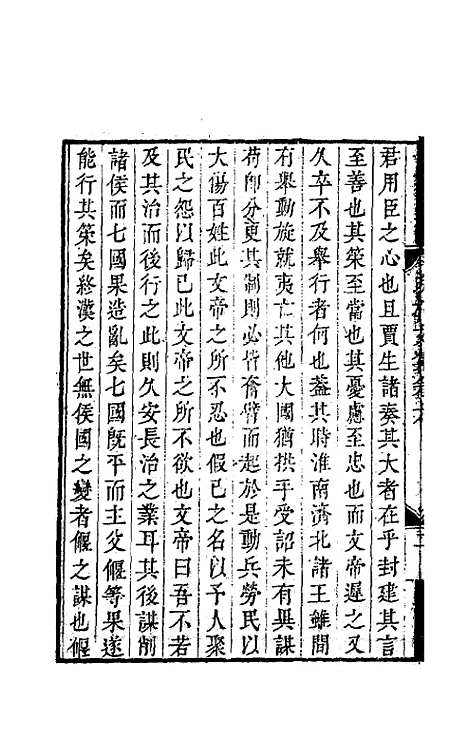 君用臣之心也且賈生諸奏其大者在乎封建其言
至善也其策至當也其憂慮至忠也而文帝遲之又
久卒不及舉行者何也蓋其時淮南濟北諸王雖間
有舉動旋就夷亡其他大國猶拱乎受詔未有異謀
苟卽分更其制則必皆奮臂而起於是動兵勞民以
大傷百姓此文帝之所不忍也假已之名以予人聚
民之怨以歸已此文帝之所不欲也文帝曰吾不若
及其治而後行之此則久安長治之業耳其後謀削
諸侯而七國果造亂矣七國旣平而主父偃等果遂
能行其策矣終漢之世無侯國之變者偃之謀也偃